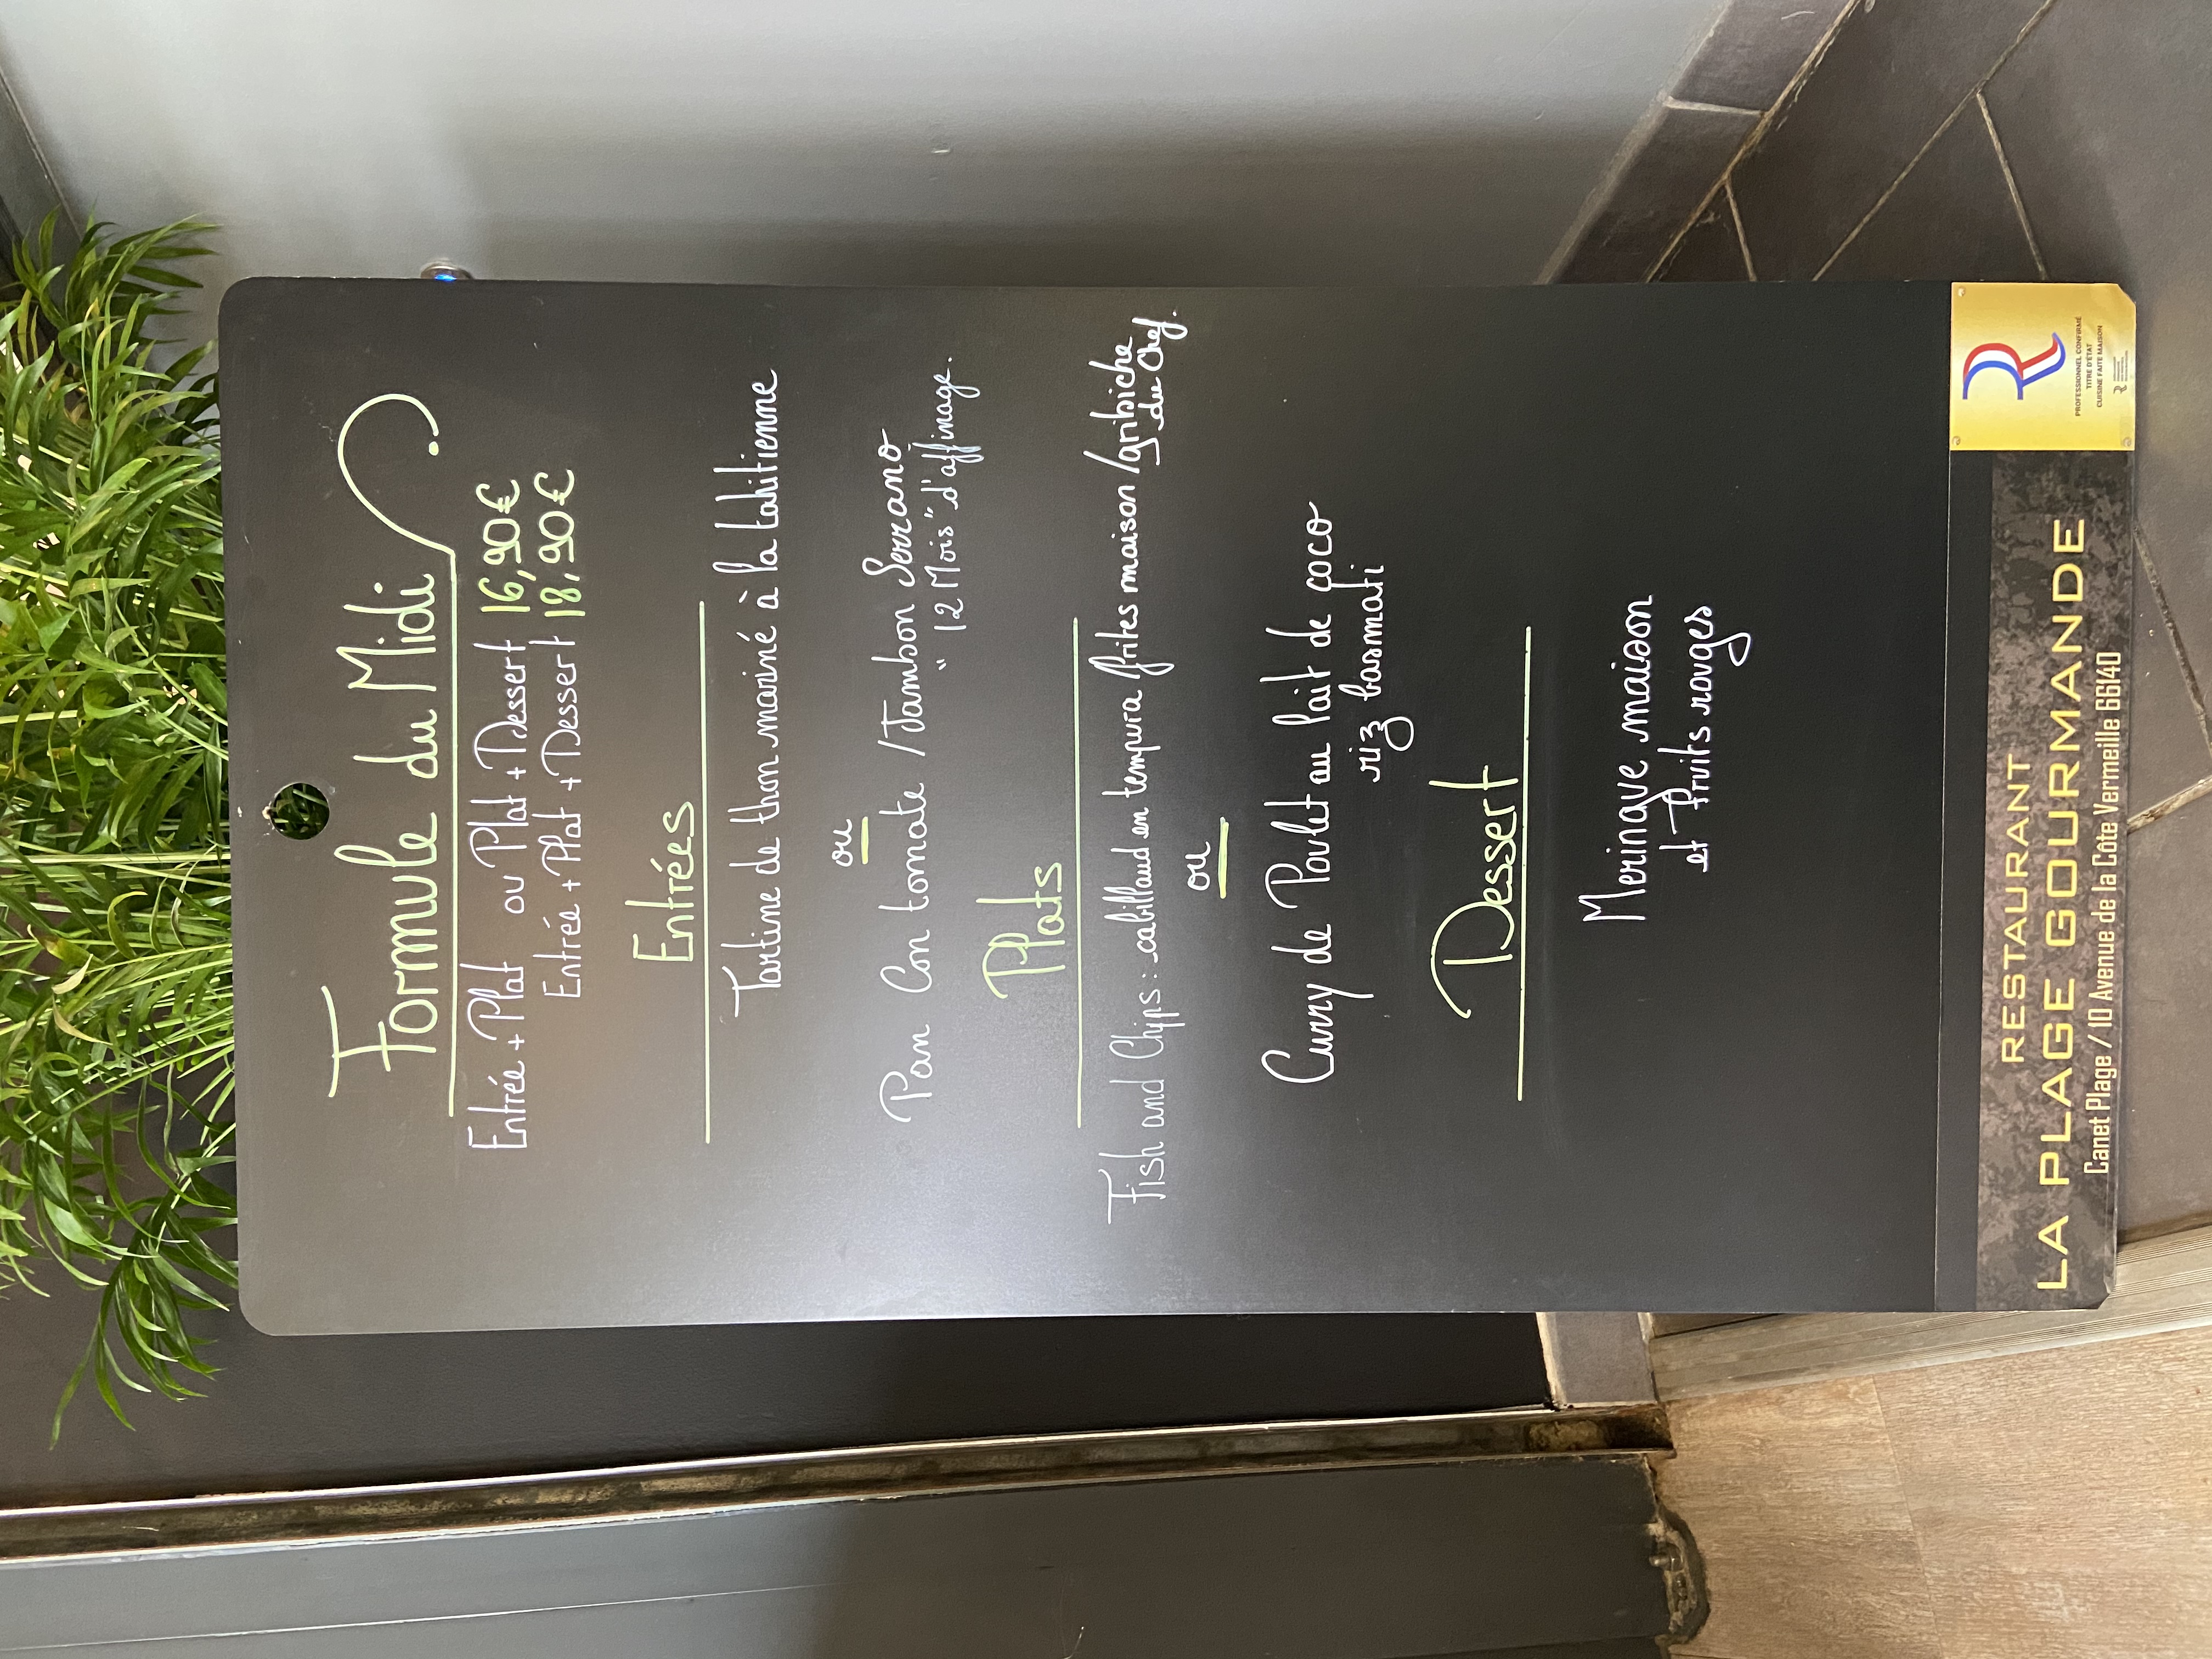 Formule du Midi
Entrée + Plat ou Plat + Dessert 16,90€
Entrée + Plat + Dessert 18,90€
Entrées
Tartine de thon mariné à la tahitienne
ou
Pan Con tomate / Jambon Serrano
"12 Mois" d'affinage.
Plats
Fish and Chips : cabillaud en tempura frites maison / gribiche
du Chef.
ou
Curry de Poulet au lait de coco
riz basmati
Dessert
Meringue maison
et Fruits rouges
RESTAURANT
LA PLAGE GOURMANDE
Canet Plage / 10 Avenue de la Côte Vermeille 66140
R
PROFESSIONNEL CONFIRMÉ
TITRE D'ÉTAT
CUISINE FAITE MAISON